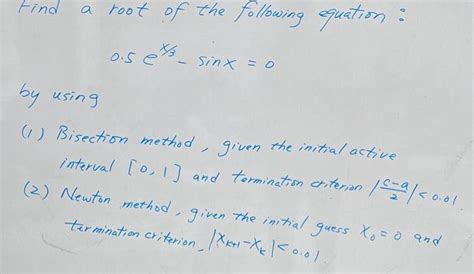 Find a root of the following equation :
0.5 e^{x/3} - sinx = 0
by using
(1) Bisection method, given the initial active
interval [0,1] and termination criterion |\frac{c-a}{2}| < 0.01.
(2) Newton method, given the initial guess X_0 = 0 and
termination criterion, |X_{k+1}-X_k| < 0.01